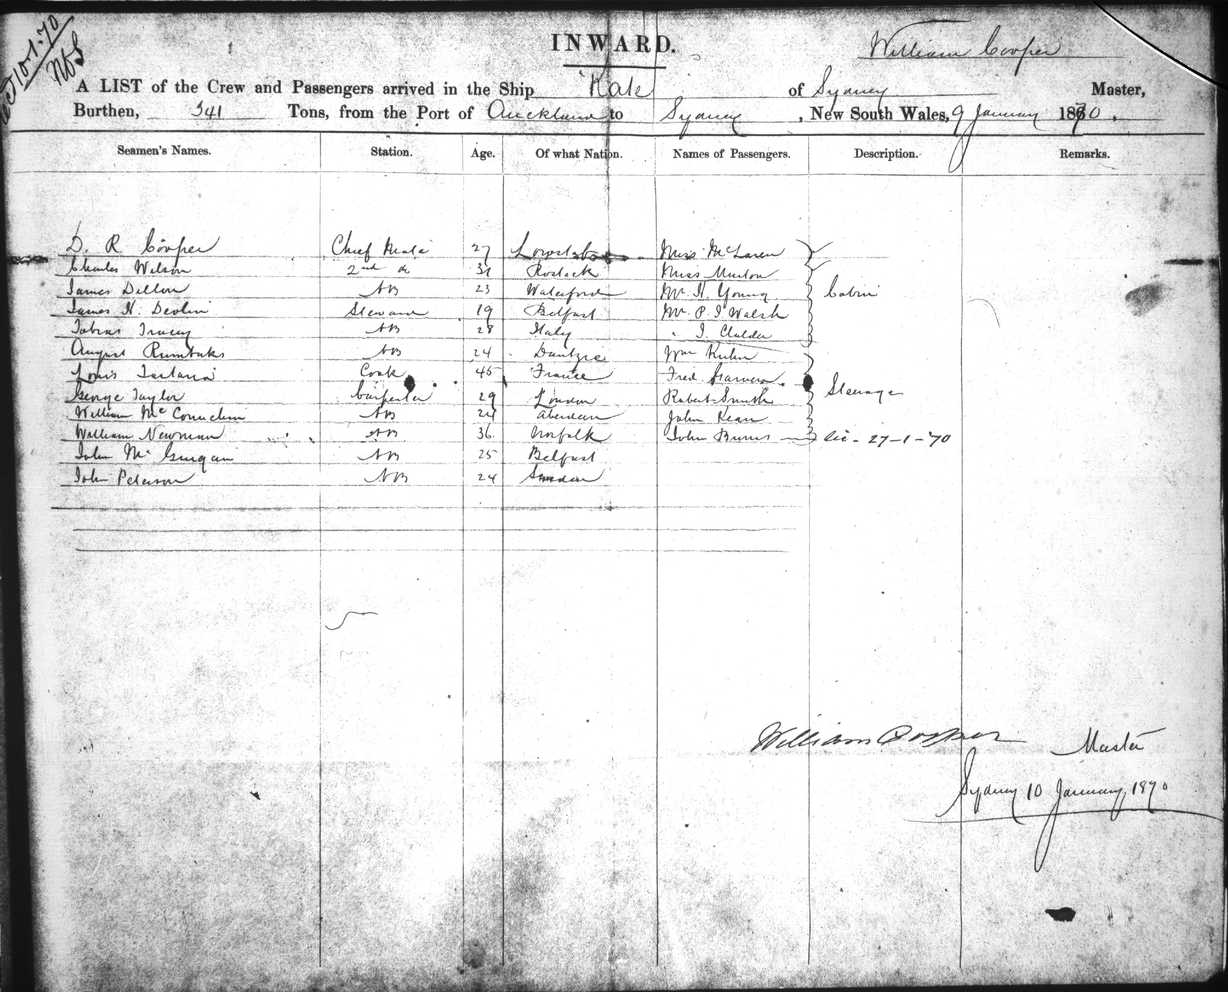 10.1.70
INWARD.
William Cooper
A LIST of the Crew and Passengers arrived in the Ship Kate of Sydney Master,
Burthen, 341 Tons, from the Port of Auckland to Sydney, New South Wales, 9 January 1870.
Seamen's Names. Station. Age. Of what Nation. Names of Passengers. Description. Remarks.
D. R Cooper Chief Mate 27 Miss McLaren
Charles Wilson 2nd do 31 Rostock Miss Murton
James Dillon AB 23 Waterford Mr H. Young Cabin
James H. Devlin Steward 19 Belfast Mr. P. J Walsh
Tobias Tracey AB 28 Italy " J. Calder
August AB 24 Dantzic Wm Kuhn
Louis Cook 45 France Fred
George Taylor Carpenter 29 London Robert Smith Steerage
William Mc AB 24 Aberdeen John Kean
William Newman AB 36 Norfolk John Burns 27-1-'70
John Mc Gurgan AB 25 Belfast
John Peterson AB 24 Sweden
William Cooper Master
Sydney 10 January, 1870